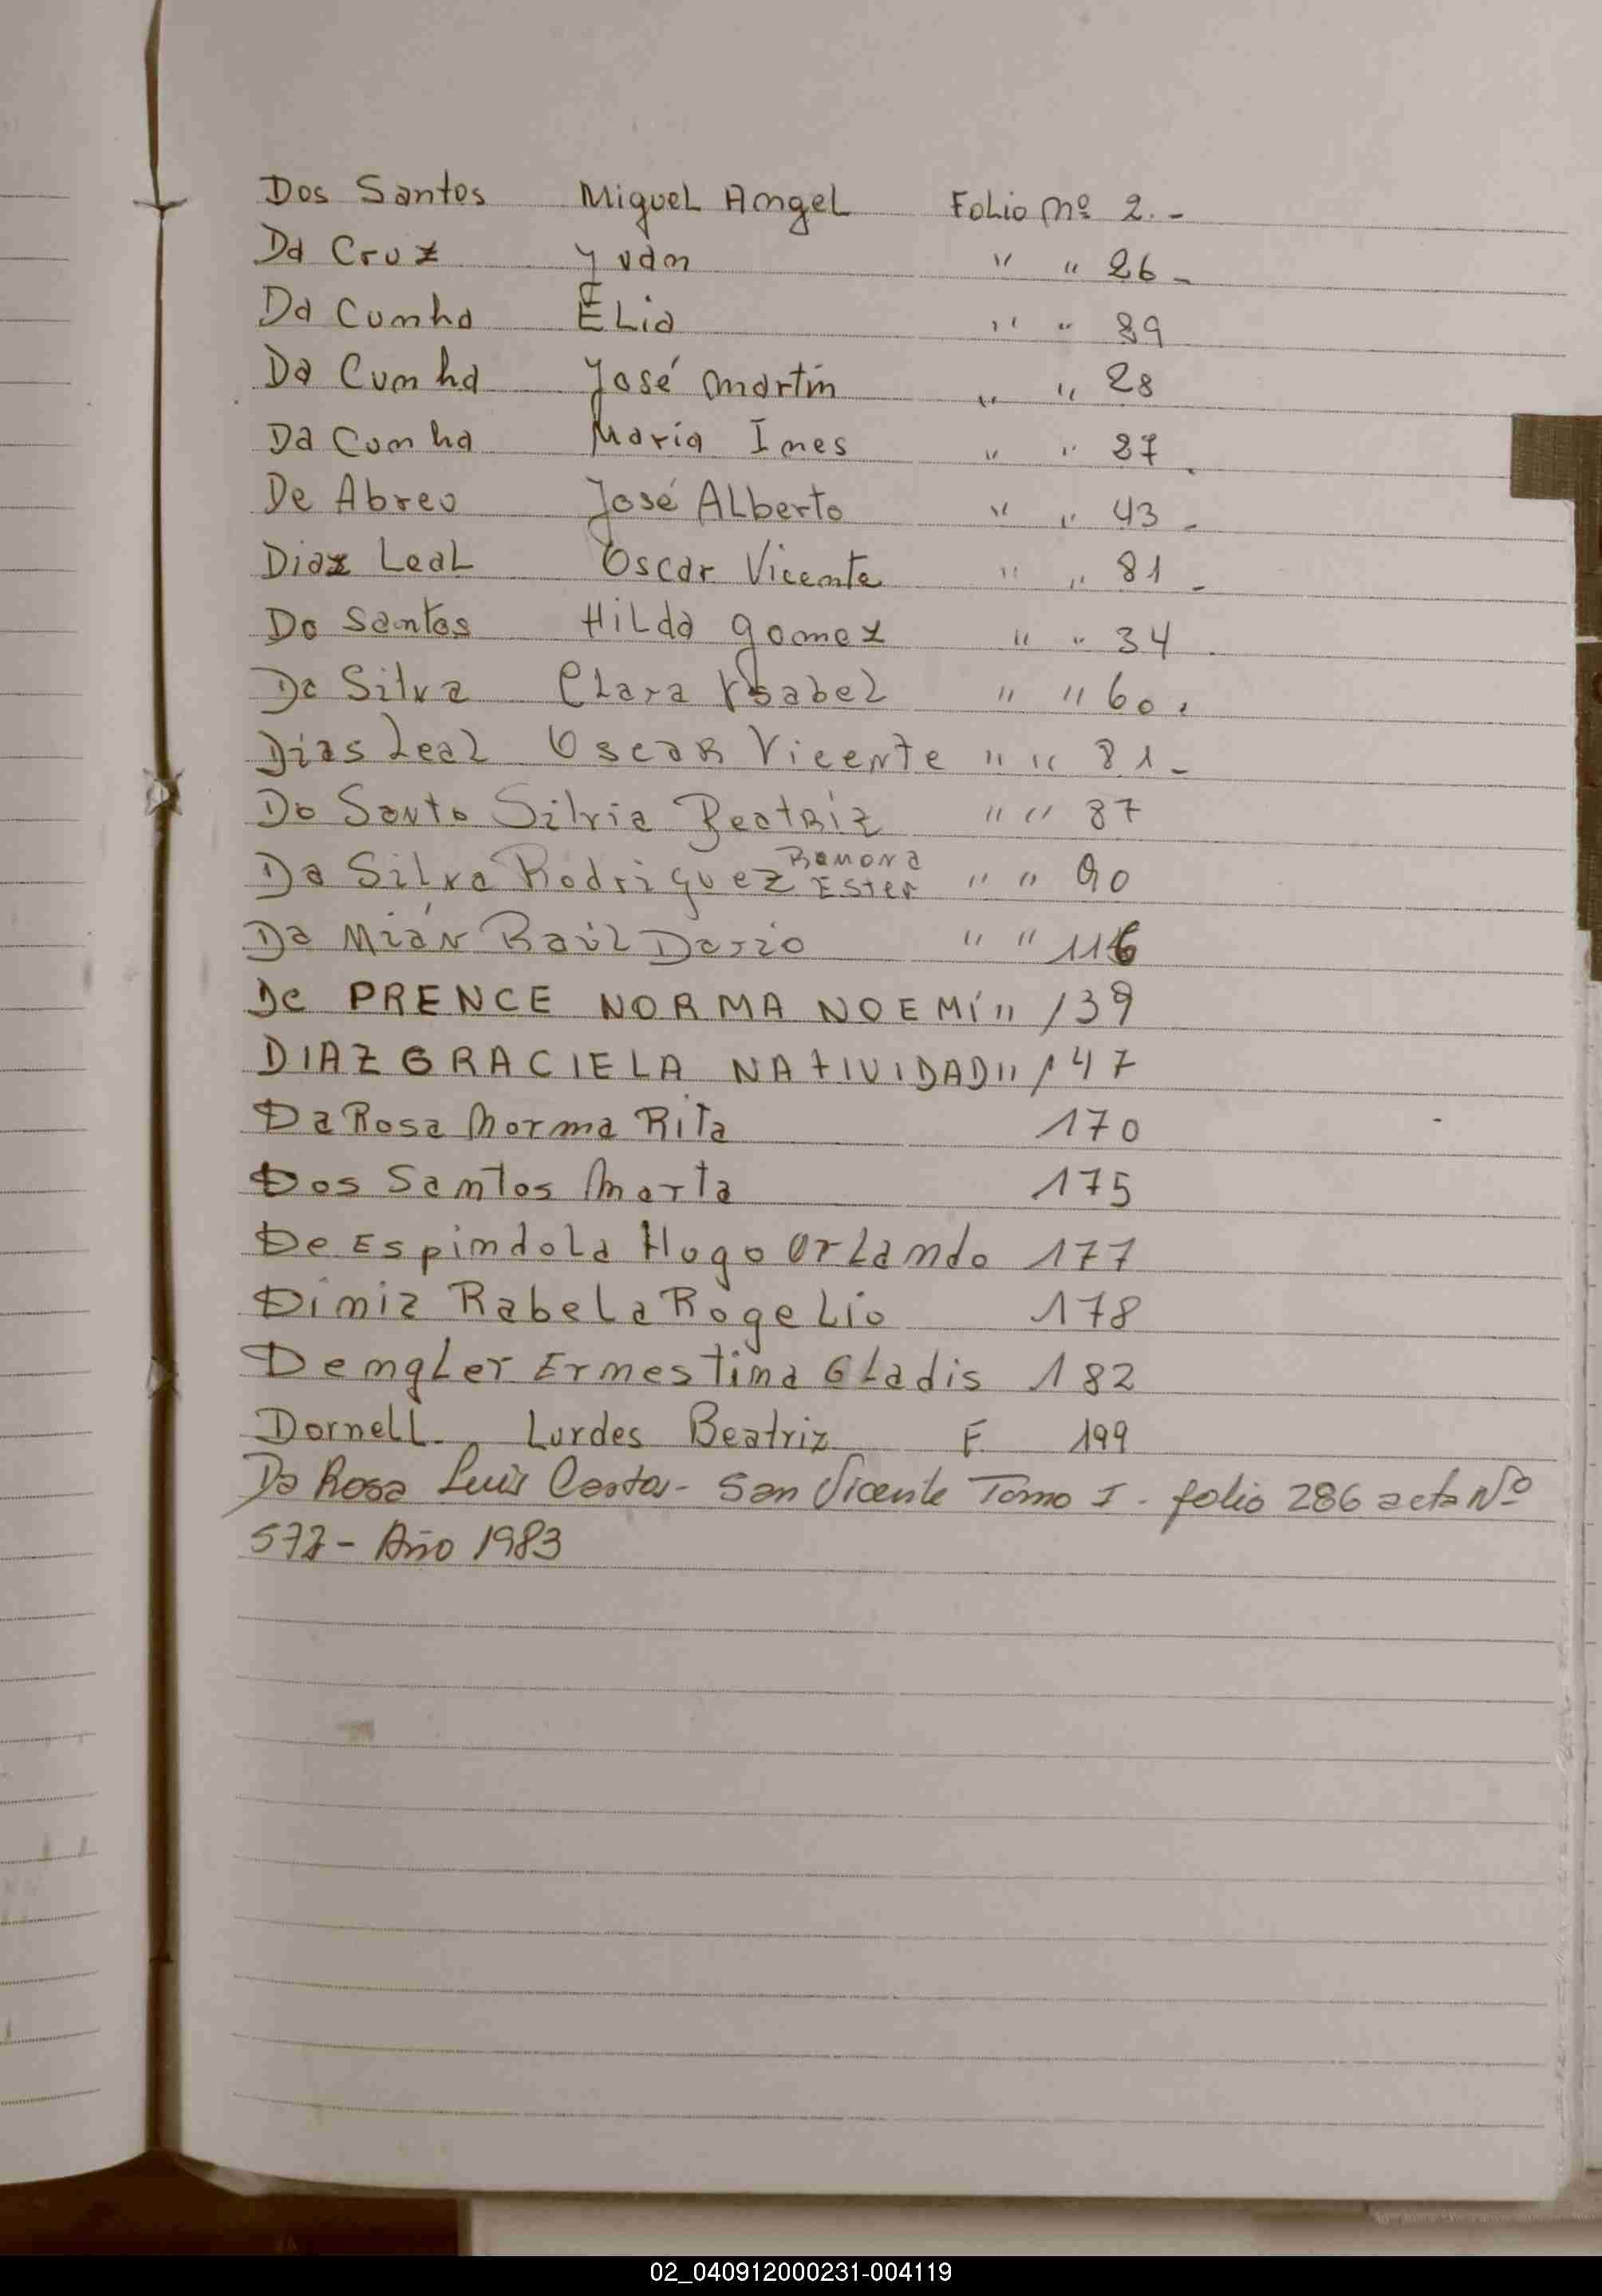 Dos Santos Miguel Angel Folio Nº 2.-
Da Cruz Yvan " " 26-
Da Cunha Elia " " 89
Da Cunha José Martin " " 28
Da Cunha Maria Ines " " 87.
De Abreu José Alberto " " 43-
Diaz Leal Oscar Vicente " " 81-
Do Santos Hilda Gomez " " 34.
Da Silva Clara Ysabel " " 60.
Dias Leal Oscar Vicente " " 81-
Do Santo Silvia Beatriz " " 87
Da Silva Rodriguez Ramona Ester " " 90
Da Mián Raúl Dario " " 116
De PRENCE NORMA NOEMí " 139
DIAZ GRACIELA NATIVIDAD " 147
Da Rosa Norma Rita 170
Dos Santos Marta 175
De Espindola Hugo Orlando 177
Diniz Rabela Rogelio 178
Dengler Ernestina Gladis 182
Dornell Lurdes Beatriz F. 199
Da Rosa Luis - San Vicente Tomo I - folio 286 acta Nº
- Año 1983
02_040912000231-004119